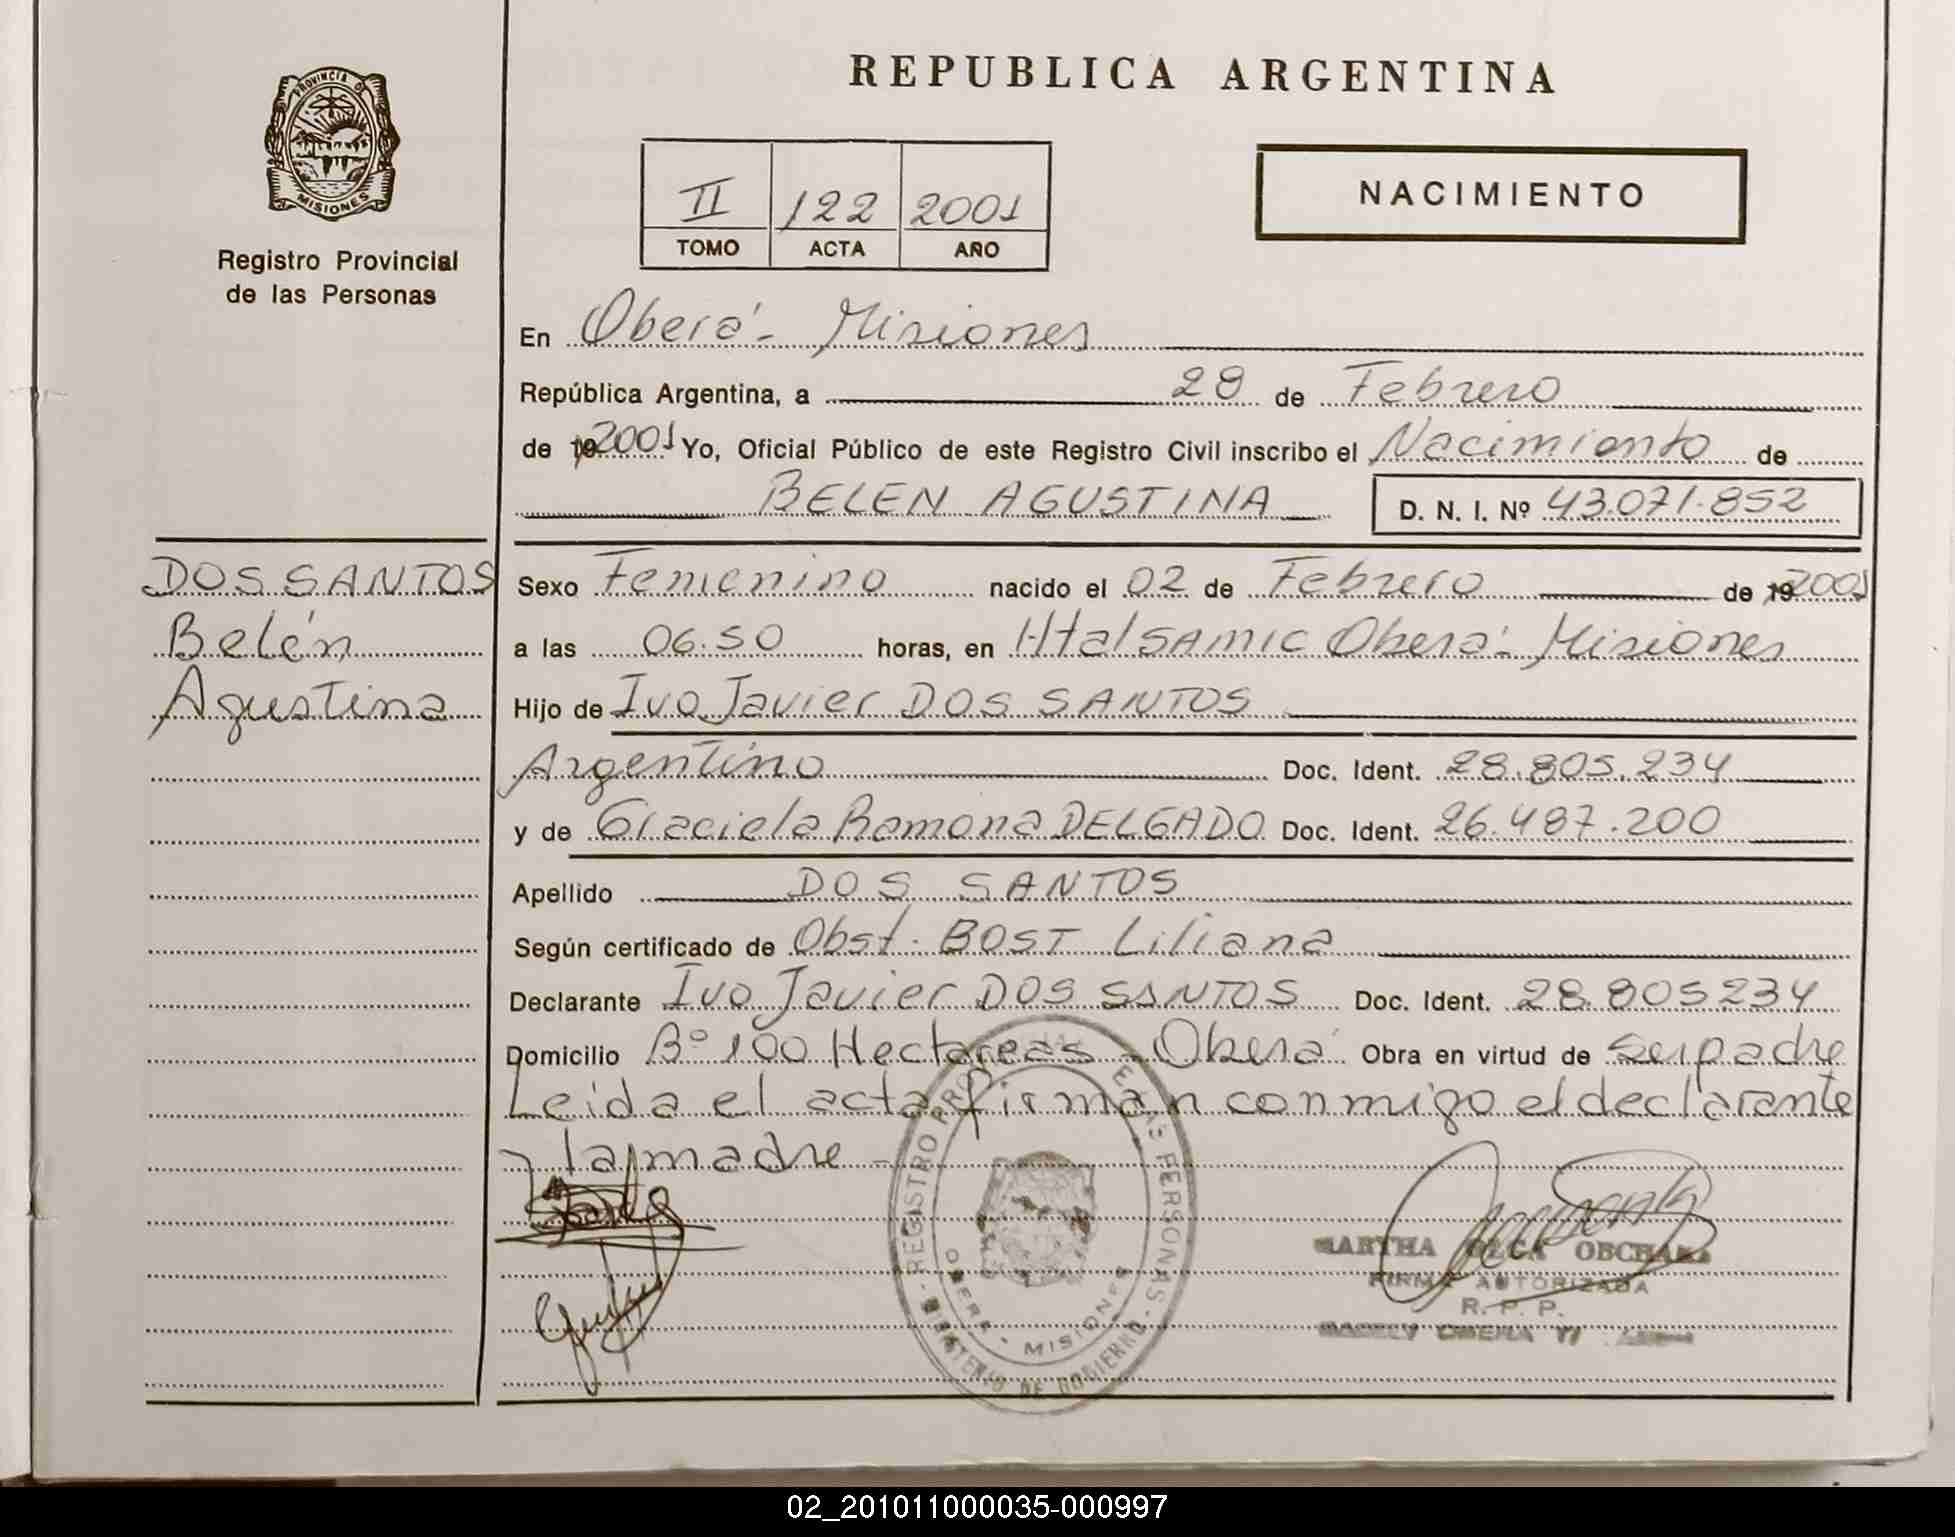 REPUBLICA ARGENTINA
PROVINCIA DE
MISIONES
Registro Provincial
de las Personas
II 122 2001
TOMO ACTA AÑO
NACIMIENTO
En Oberá - Misiones
República Argentina, a 28 de Febrero
de 19 2001 Yo, Oficial Público de este Registro Civil inscribo el Nacimiento de
BELEN AGUSTINA D. N. I. Nº 43.071.852
DOS SANTOS
Belén
Agustina
Sexo Femenino nacido el 02 de Febrero de 19 2001
a las 06:50 horas, en Htal SAMIC Oberá - Misiones
Hijo de Ivo Javier DOS SANTOS
Argentino Doc. Ident. 28.805.234
y de Graciela Ramona DELGADO Doc. Ident. 26.487.200
Apellido DOS SANTOS
Según certificado de Obst. BOST Liliana
Declarante Ivo Javier DOS SANTOS Doc. Ident. 28.805234
Domicilio Bº 100 Hectareas - Oberá Obra en virtud de ser padre
Leida el acta firman conmigo el declarante
y la madre -
REGISTRO PROVINCIAL DE LAS PERSONAS
OBERA - MISIONES
MINISTERIO DE GOBIERNO
MARTHA OLGA
FIRMA AUTORIZADA
R. P. P.
OBERA
02_201011000035-000997